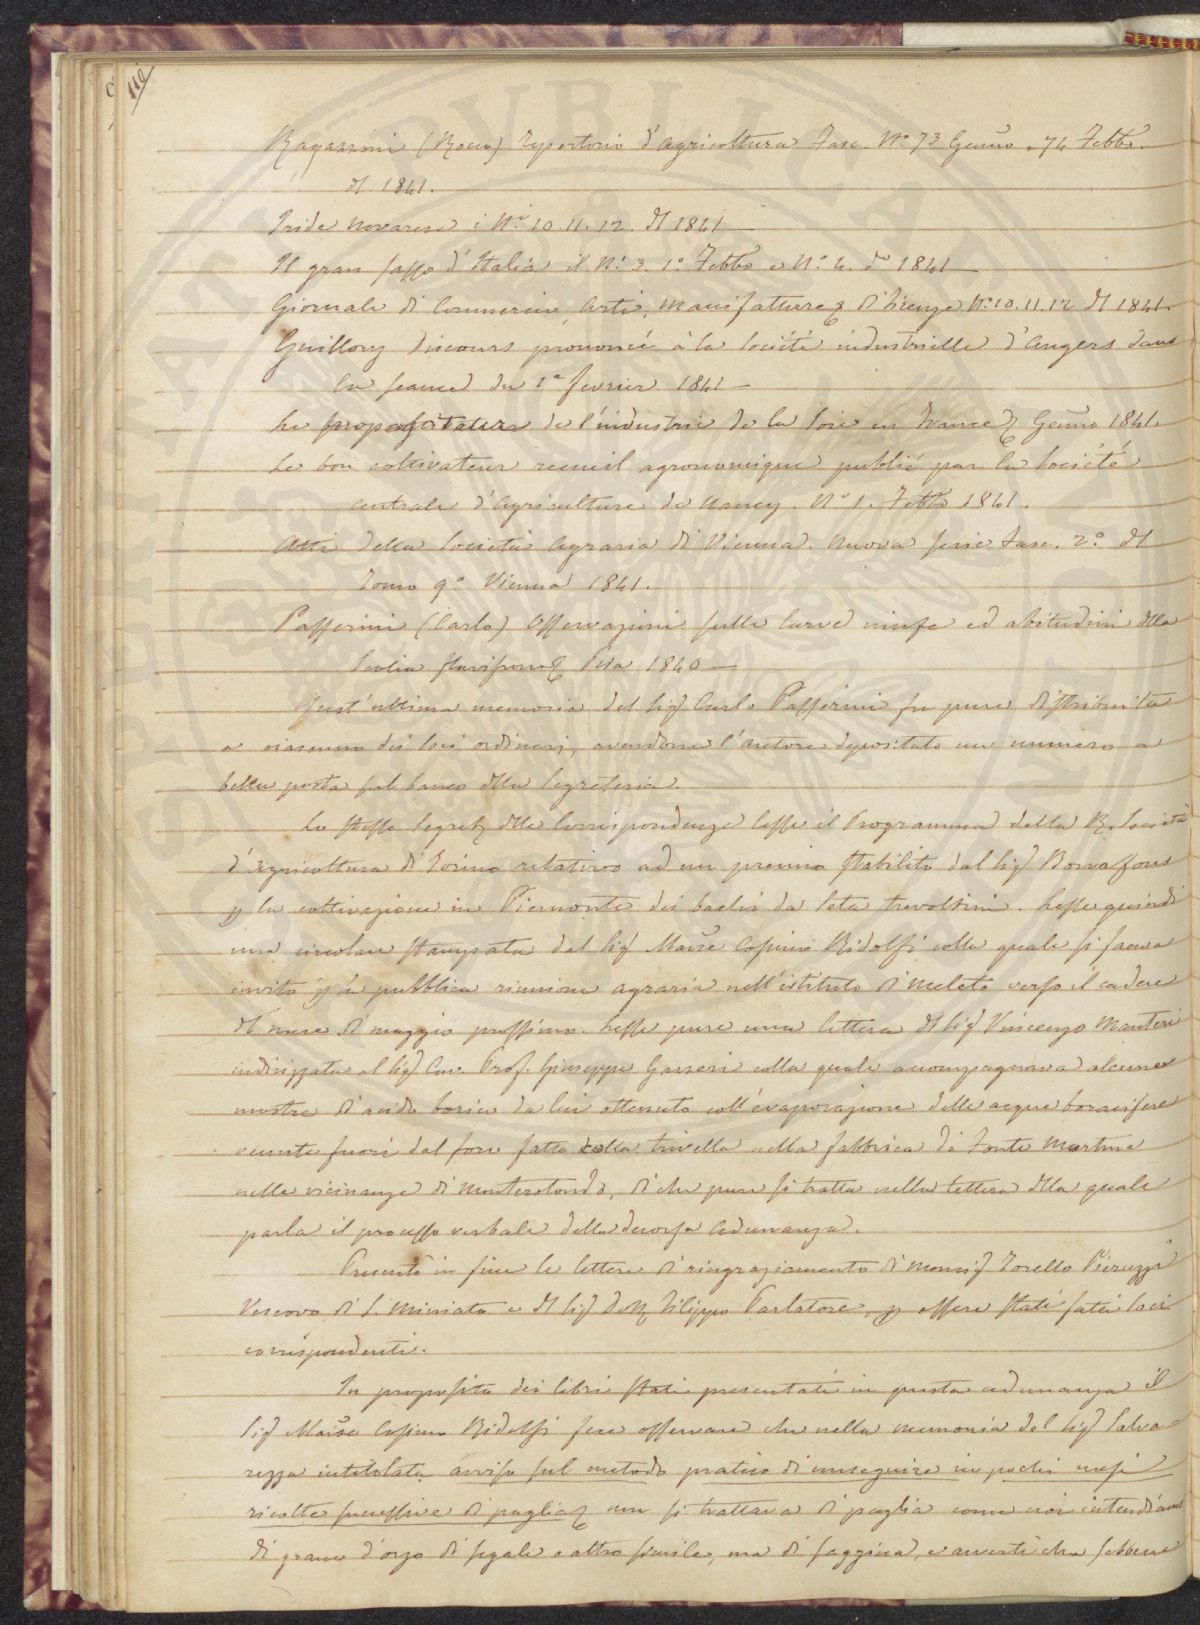 110
Ragazzoni (Rocco) Repertorio d'Agricoltura Fasc. N.º 73 Genño e 74 Febbo.
del 1841.
Iride Novarese i Ni 10. 11. 12. del 1841 —
Il gran sasso d'Italia il N.º 3. 1.º Febbo e N.º 4. do 1841 —
Giornale di Commercio, Arti, Manifatture & di Firenze N.º 10. 11. 12 del 1841.
Guillory discours prononcé à la Société industrielle d'Angers dans
la seance du 1er fevrier 1841 —
Le propagateur de l'industrie de la soie en France & Genño 1841.
Le bon cultivateur recueil agronomique publié par la Société
centrale d'Agriculture de Nancy. N.º 1. Febbo 1841.
Atti della Società Agraria di Vienna. Nuova serie Fasc. 2.º del
Tomo 9.º Vienna 1841.
Passerini (Carlo) Osservazioni sulle larve ninfe ed abitudini della
Scolia flavifrons & Pisa 1840 —
Quest'ultima memoria del Sig Carlo Passerini fu pure distribuita
a ciascuno dei soci ordinari, avendone l'autore depositato un numero a
bella posta sul banco della Segreteria.
Lo stesso Segret delle Corrispondenze lesse il Programma della R. Società
d'Agricoltura di Torino relativo ad un premio stabilito dal Sig Bonafous
p la coltivazione in Piemonte dei bachi da seta trevoltini. Lesse quindi
una circolare stampata del Sig Marse Cosimo Ridolfi colla quale si faceva
invito p la pubblica riunione agraria nell'istituto di Meleto verso il cadere
del mese di maggio prossimo. Lesse pure una lettera del Sig Vincenzo Manteri
indirizzata al Sig Cav. Prof. Giuseppe Gazzeri colla quale accompagnava alcune
mostre d'acido borico da lui ottenuto coll'evaporazione delle acque boracifere
venute fuori dal foro fatto colla trivella nella fabbrica di Fonte Martina
nelle vicinanze di Monterotondo, di che pure si tratta nella lettera della quale
parla il processo verbale della decorsa Adunanza.
Presentò in fine le lettere di ringraziamento di Monsig Torello Pierazzi
Vescovo di S. Miniato e del Sig Dott Filippo Parlatore, p essere stati fatti soci
corrispondenti.
In proposito dei libri stati presentati in questa adunanza il
Sig Marse Cosimo Ridolfi fece osservare che nella memoria del Sig Salva
rezza intitolata avviso sul metodo pratico di conseguire in pochi mesi
ricolte successive di paglia & non si trattava di paglia come noi intendiamo
di grano d'orzo di segale o altro simile, ma di saggina, e avvertì che sebbene